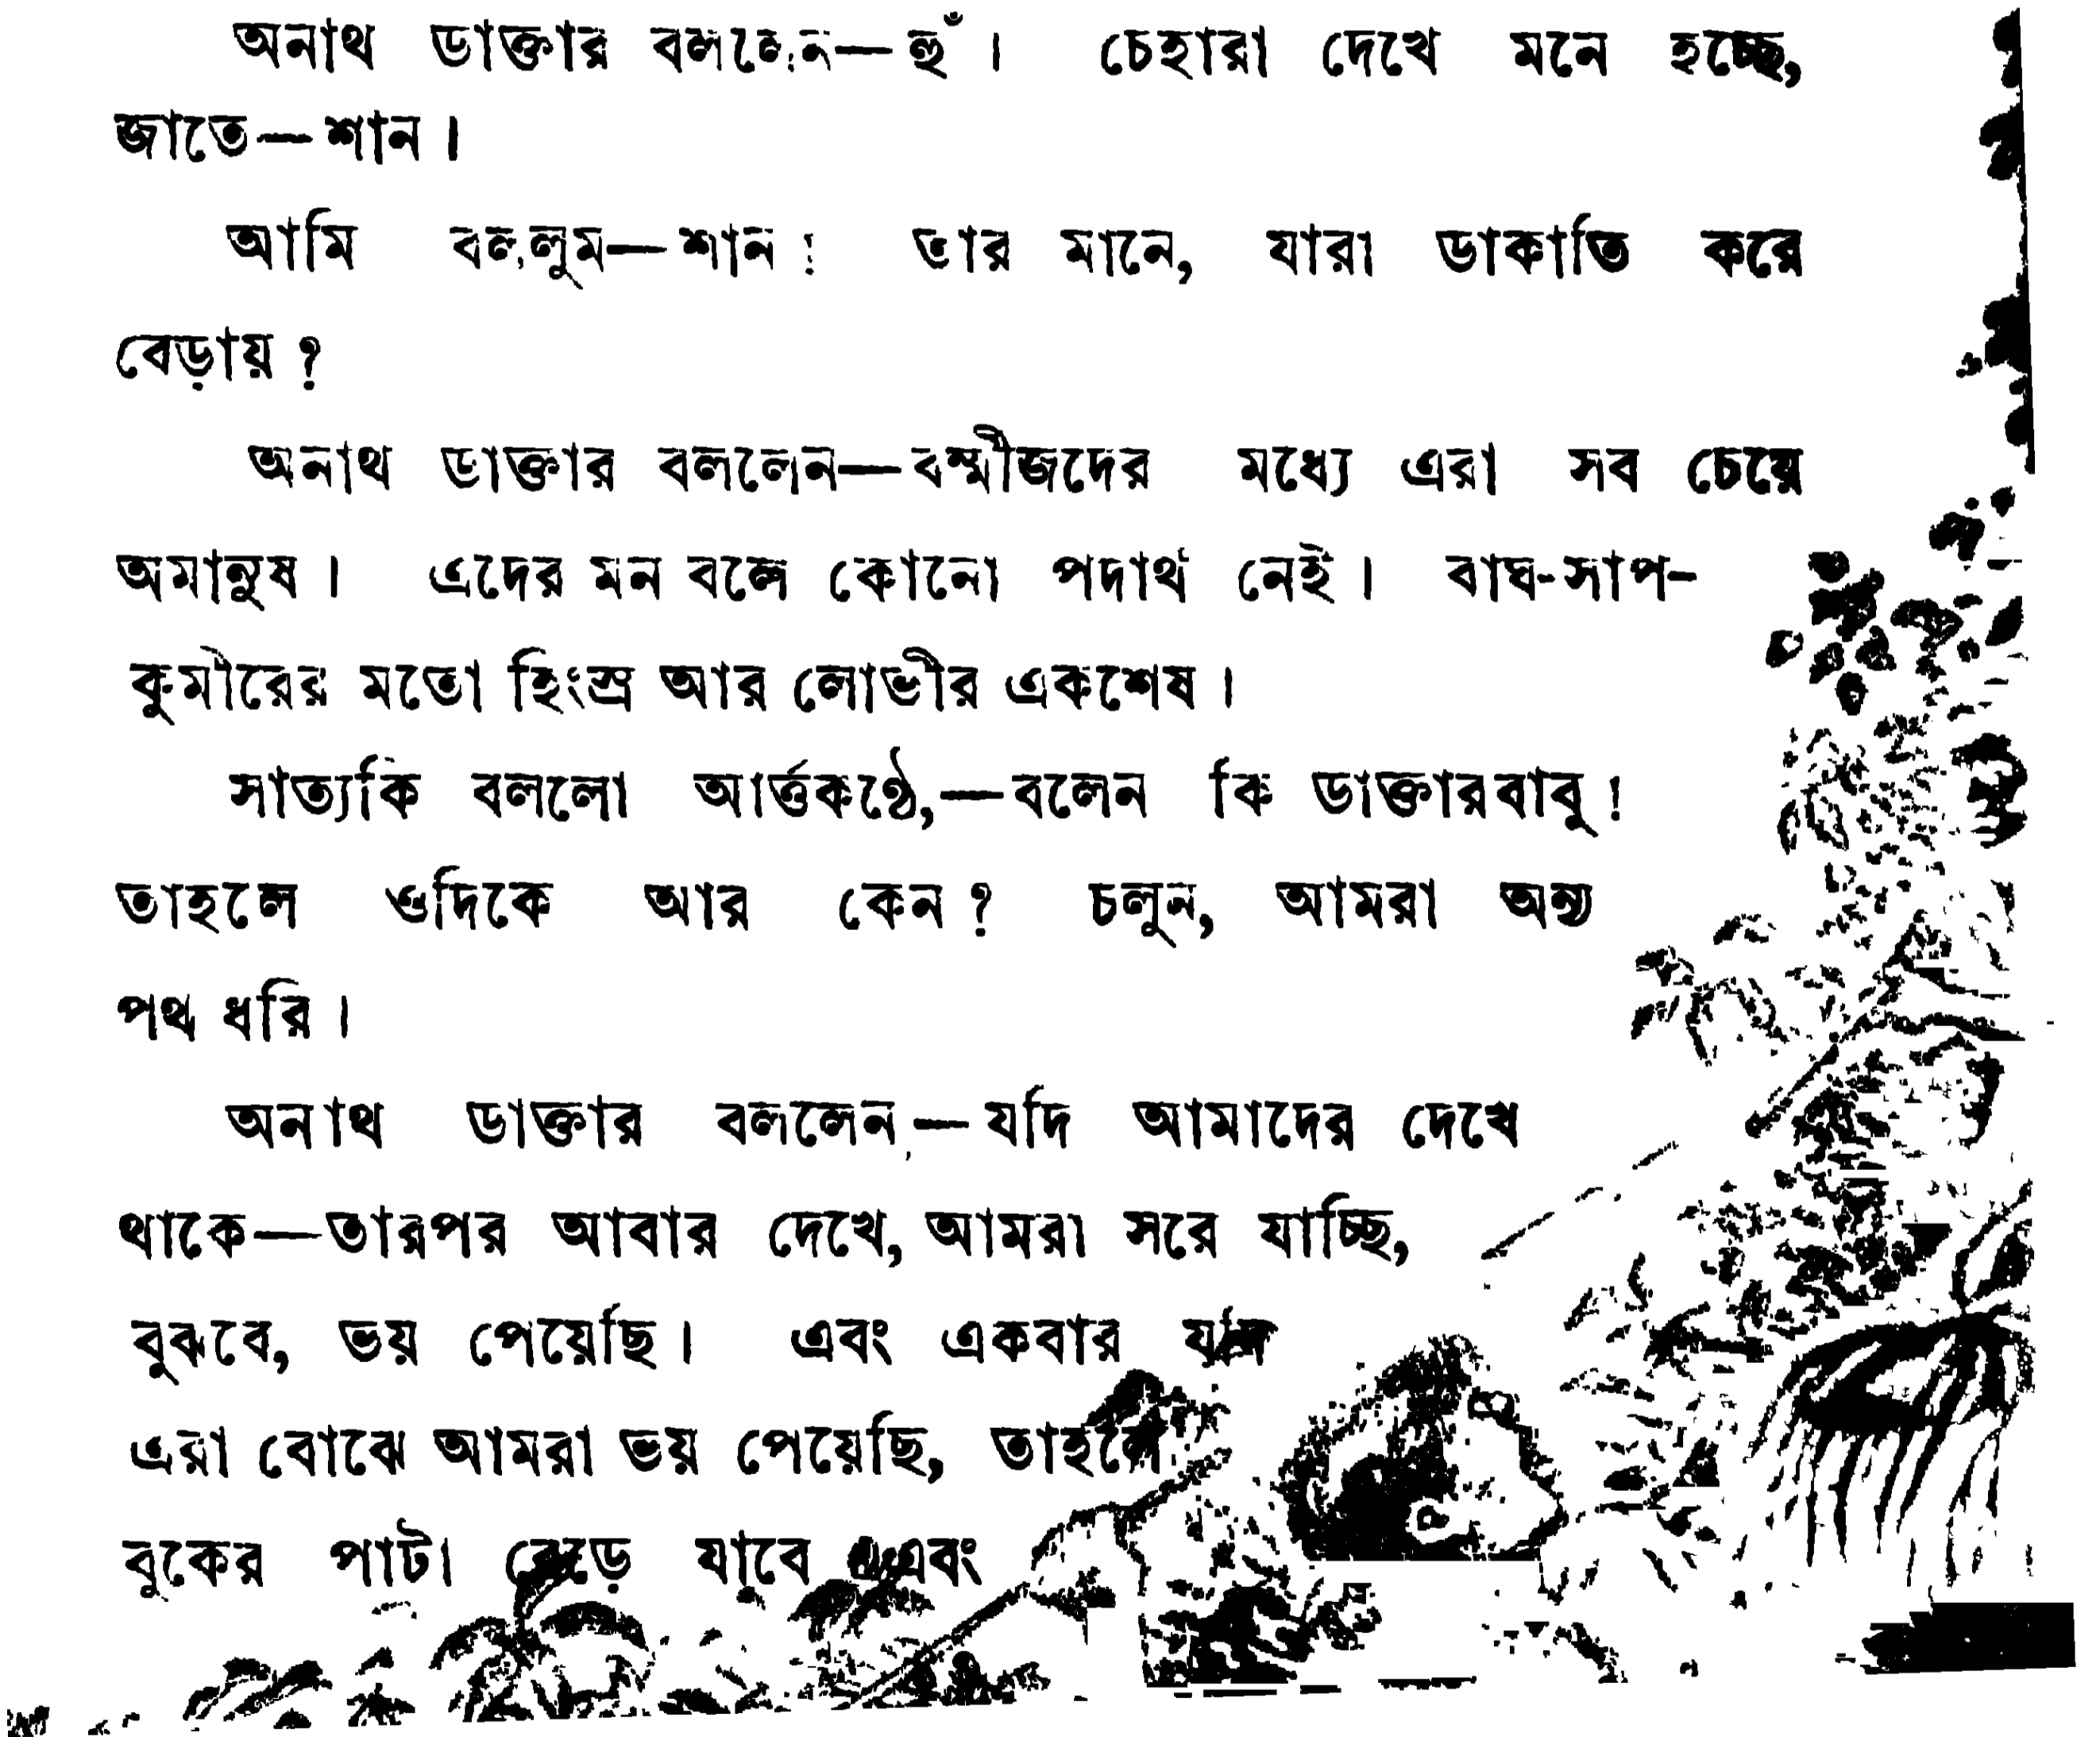 অনাথ ডাক্তার বললেন—হুঁ। চেহারা দেখে মনে হচ্ছে,
জাতে—শান।
আমি বললুম—শান! তার মানে, যারা ডাকাতি করে
বেড়ায়?
অনাথ ডাক্তার বললেন—বর্ম্মীজদের মধ্যে এরা সব চেয়ে
অমানুষ। এদের মন বলে কোনো পদার্থ নেই। বাঘ-সাপ-
কুমীরের মতো হিংস্র আর লোভীর একশেষ।
সাত্যকি বললো আর্ত্তকণ্ঠে,—বলেন কি ডাক্তারবাবু!
তাহলে ওদিকে আর কেন? চলুন, আমরা অন্য
পথ ধরি।
অনাথ ডাক্তার বললেন,—যদি আমাদের দেখে
থাকে—তারপর আবার দেখে, আমরা সরে যাচ্ছি,
বুঝবে, ভয় পেয়েছি। এবং একবার যদি
এরা বোঝে আমরা ভয় পেয়েছি, তাহলে
বুকের পাটা বেড়ে যাবে এবং